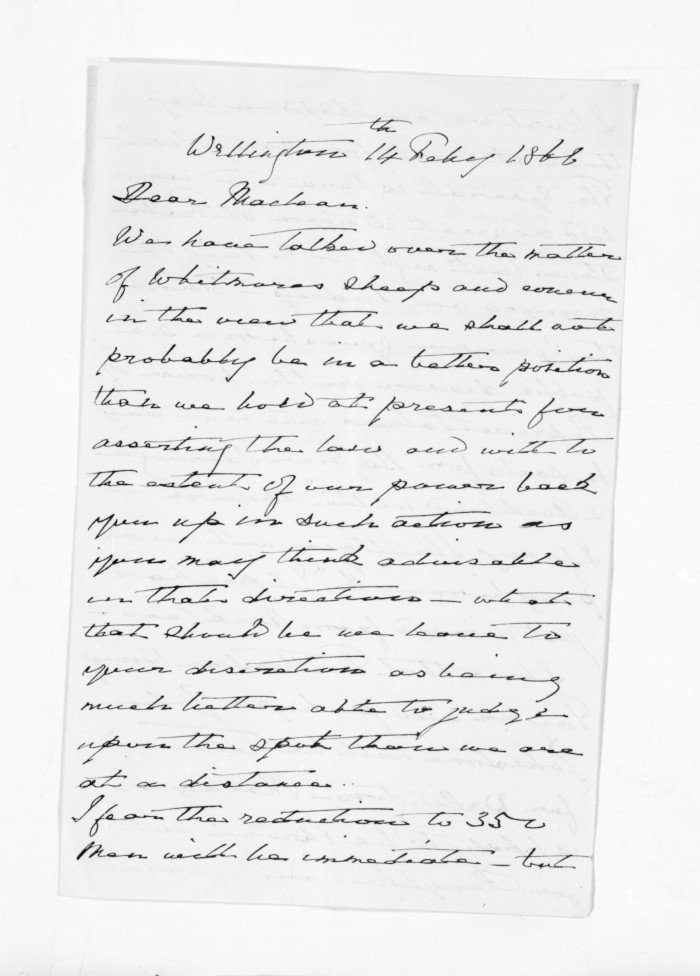 Wellington 14th Feby 1868
Dear Maclean.
We have talked over the matter
of Whitmores Sheep and concur
in the view that we shall not
probably be in a better position
than we hold at present for
asserting the law and will to
the extent of our power back
you up in such action as
you may think advisable
in that direction — what
that should be we leave to
your discretion as being
much better able to judge
upon the spot than we are
at a distance.
I fear the reduction to 350
Men will be immediate — but